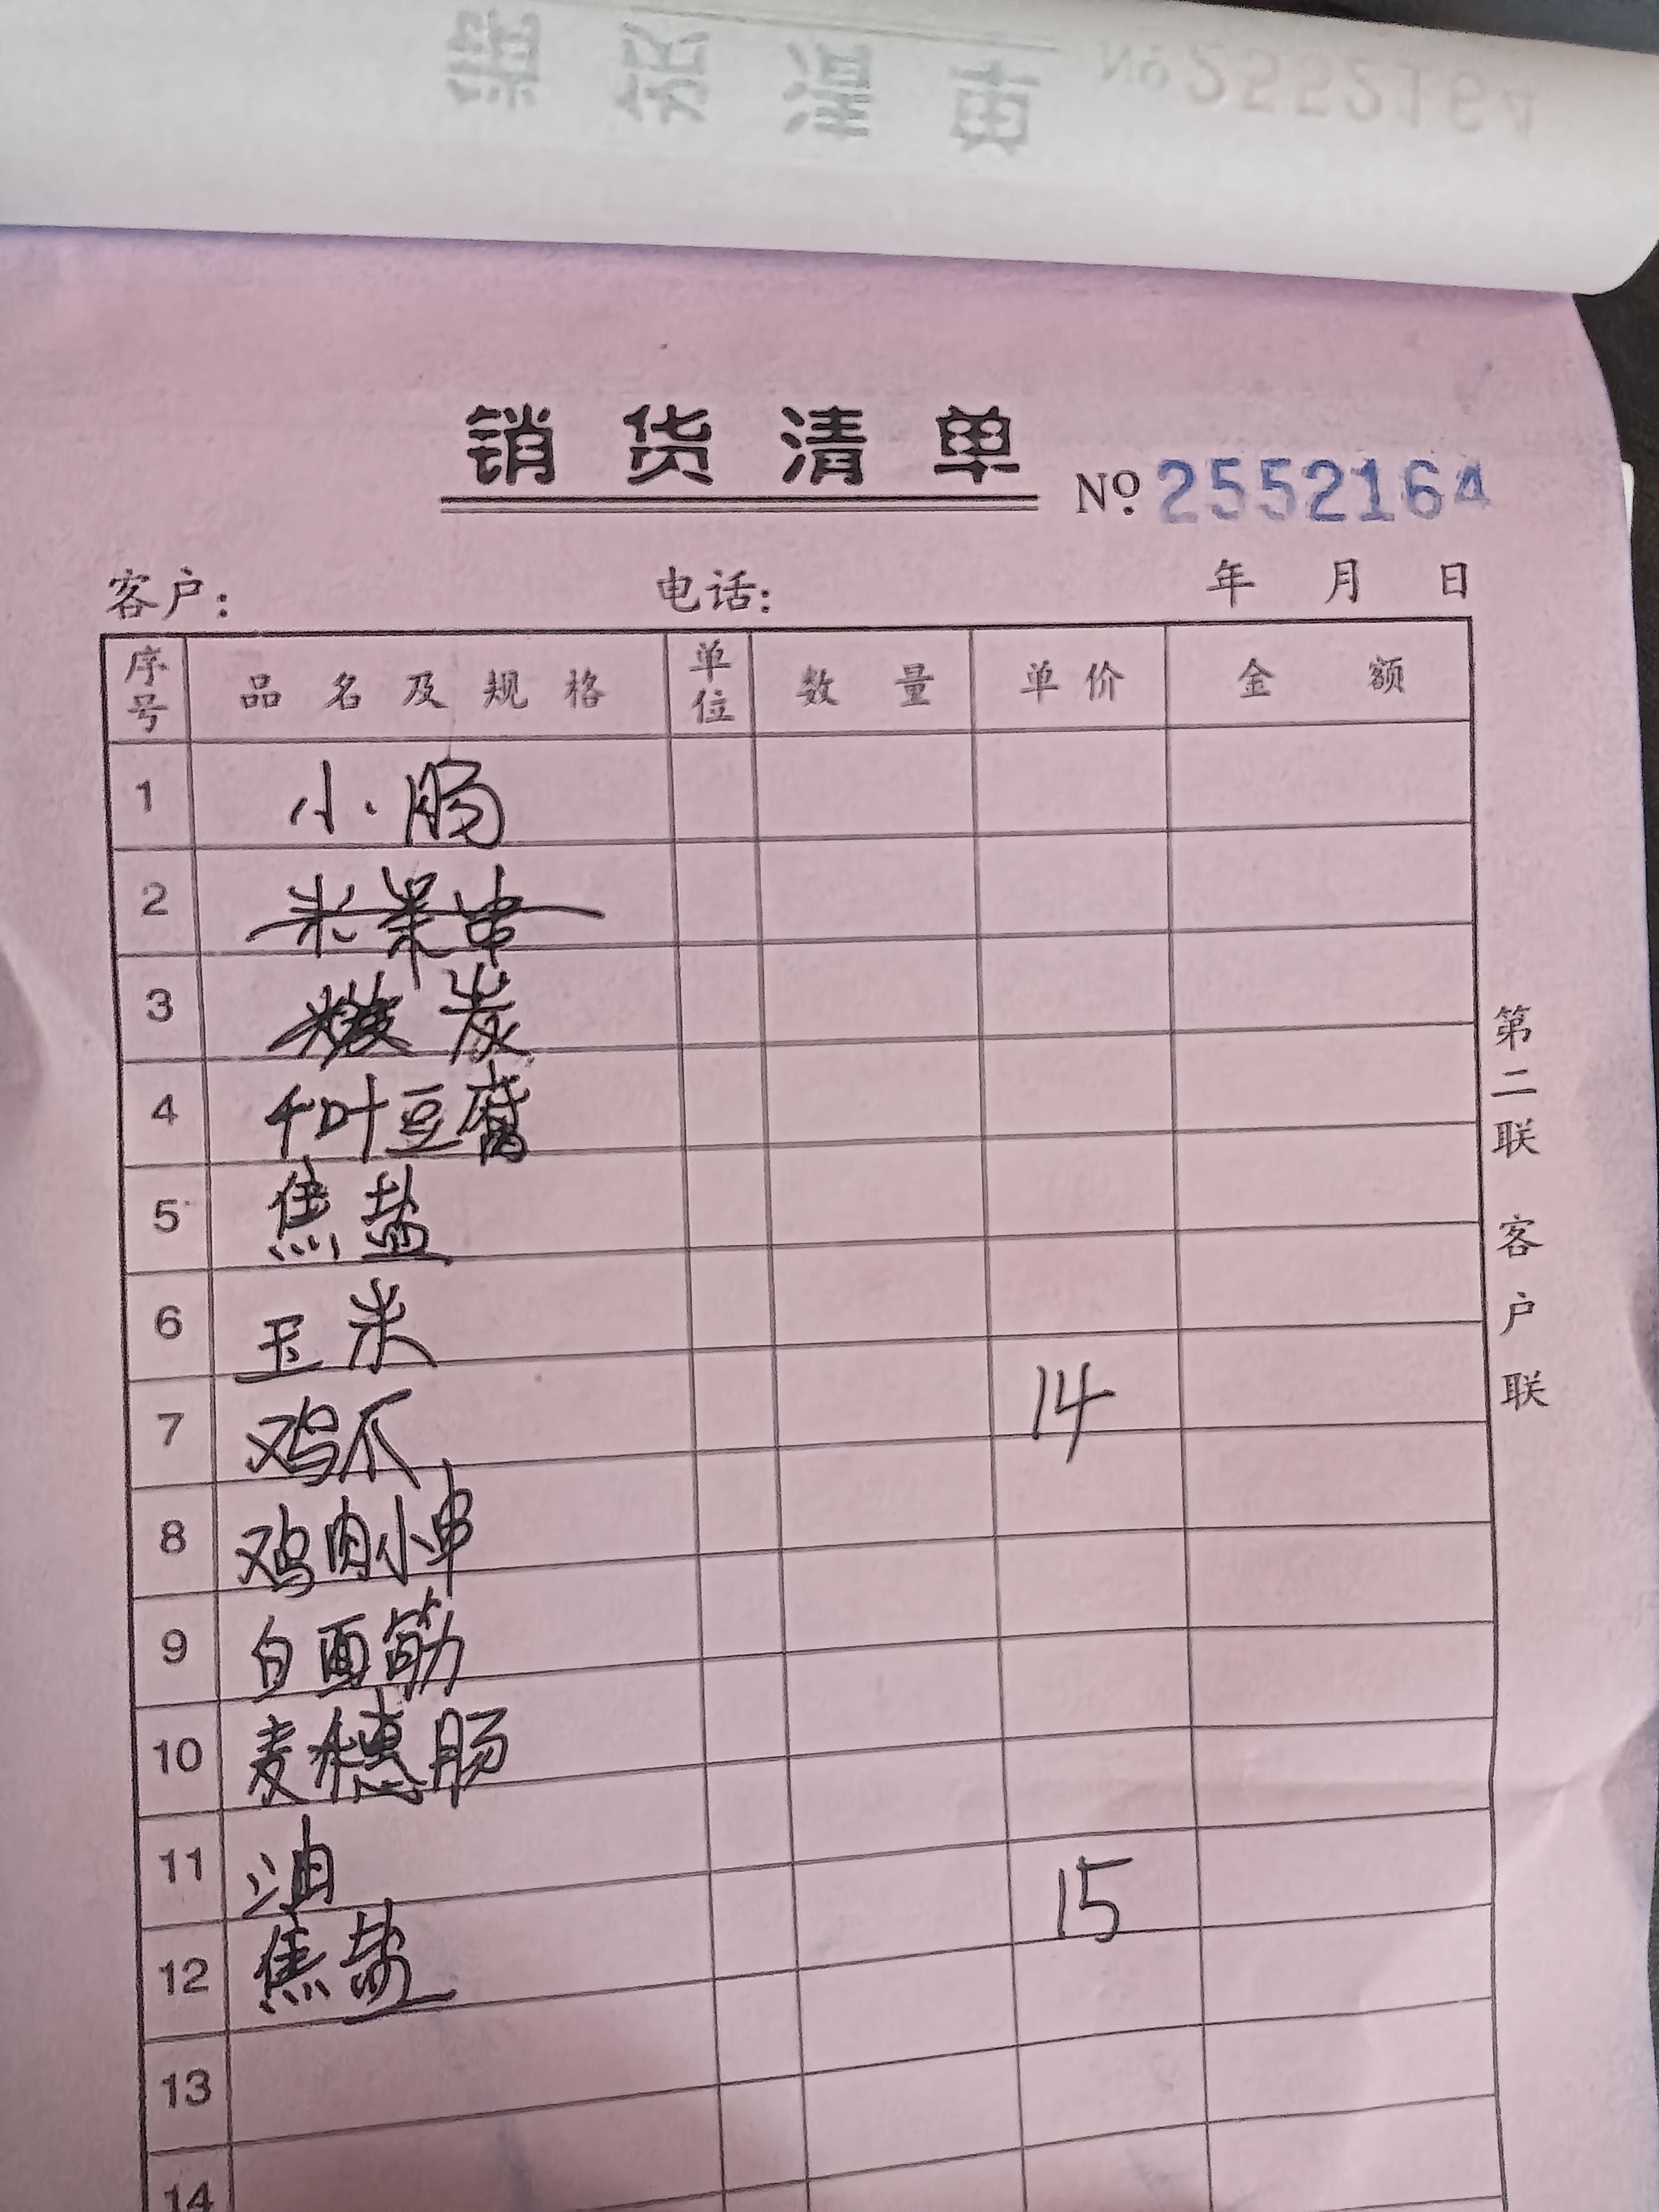 销货清单 № 2552164
客户： 电话： 年 月 日
序号 品名及规格 单位 数量 单价 金额
1 小肠
2 米果串
3 炭
4 千叶豆腐
5 焦盐
6 玉米
7 鸡爪 14
8 鸡肉小串
9 白面筋
10 麦穗肠
11 油 15
12 焦盐
13
14
第二联 客户联